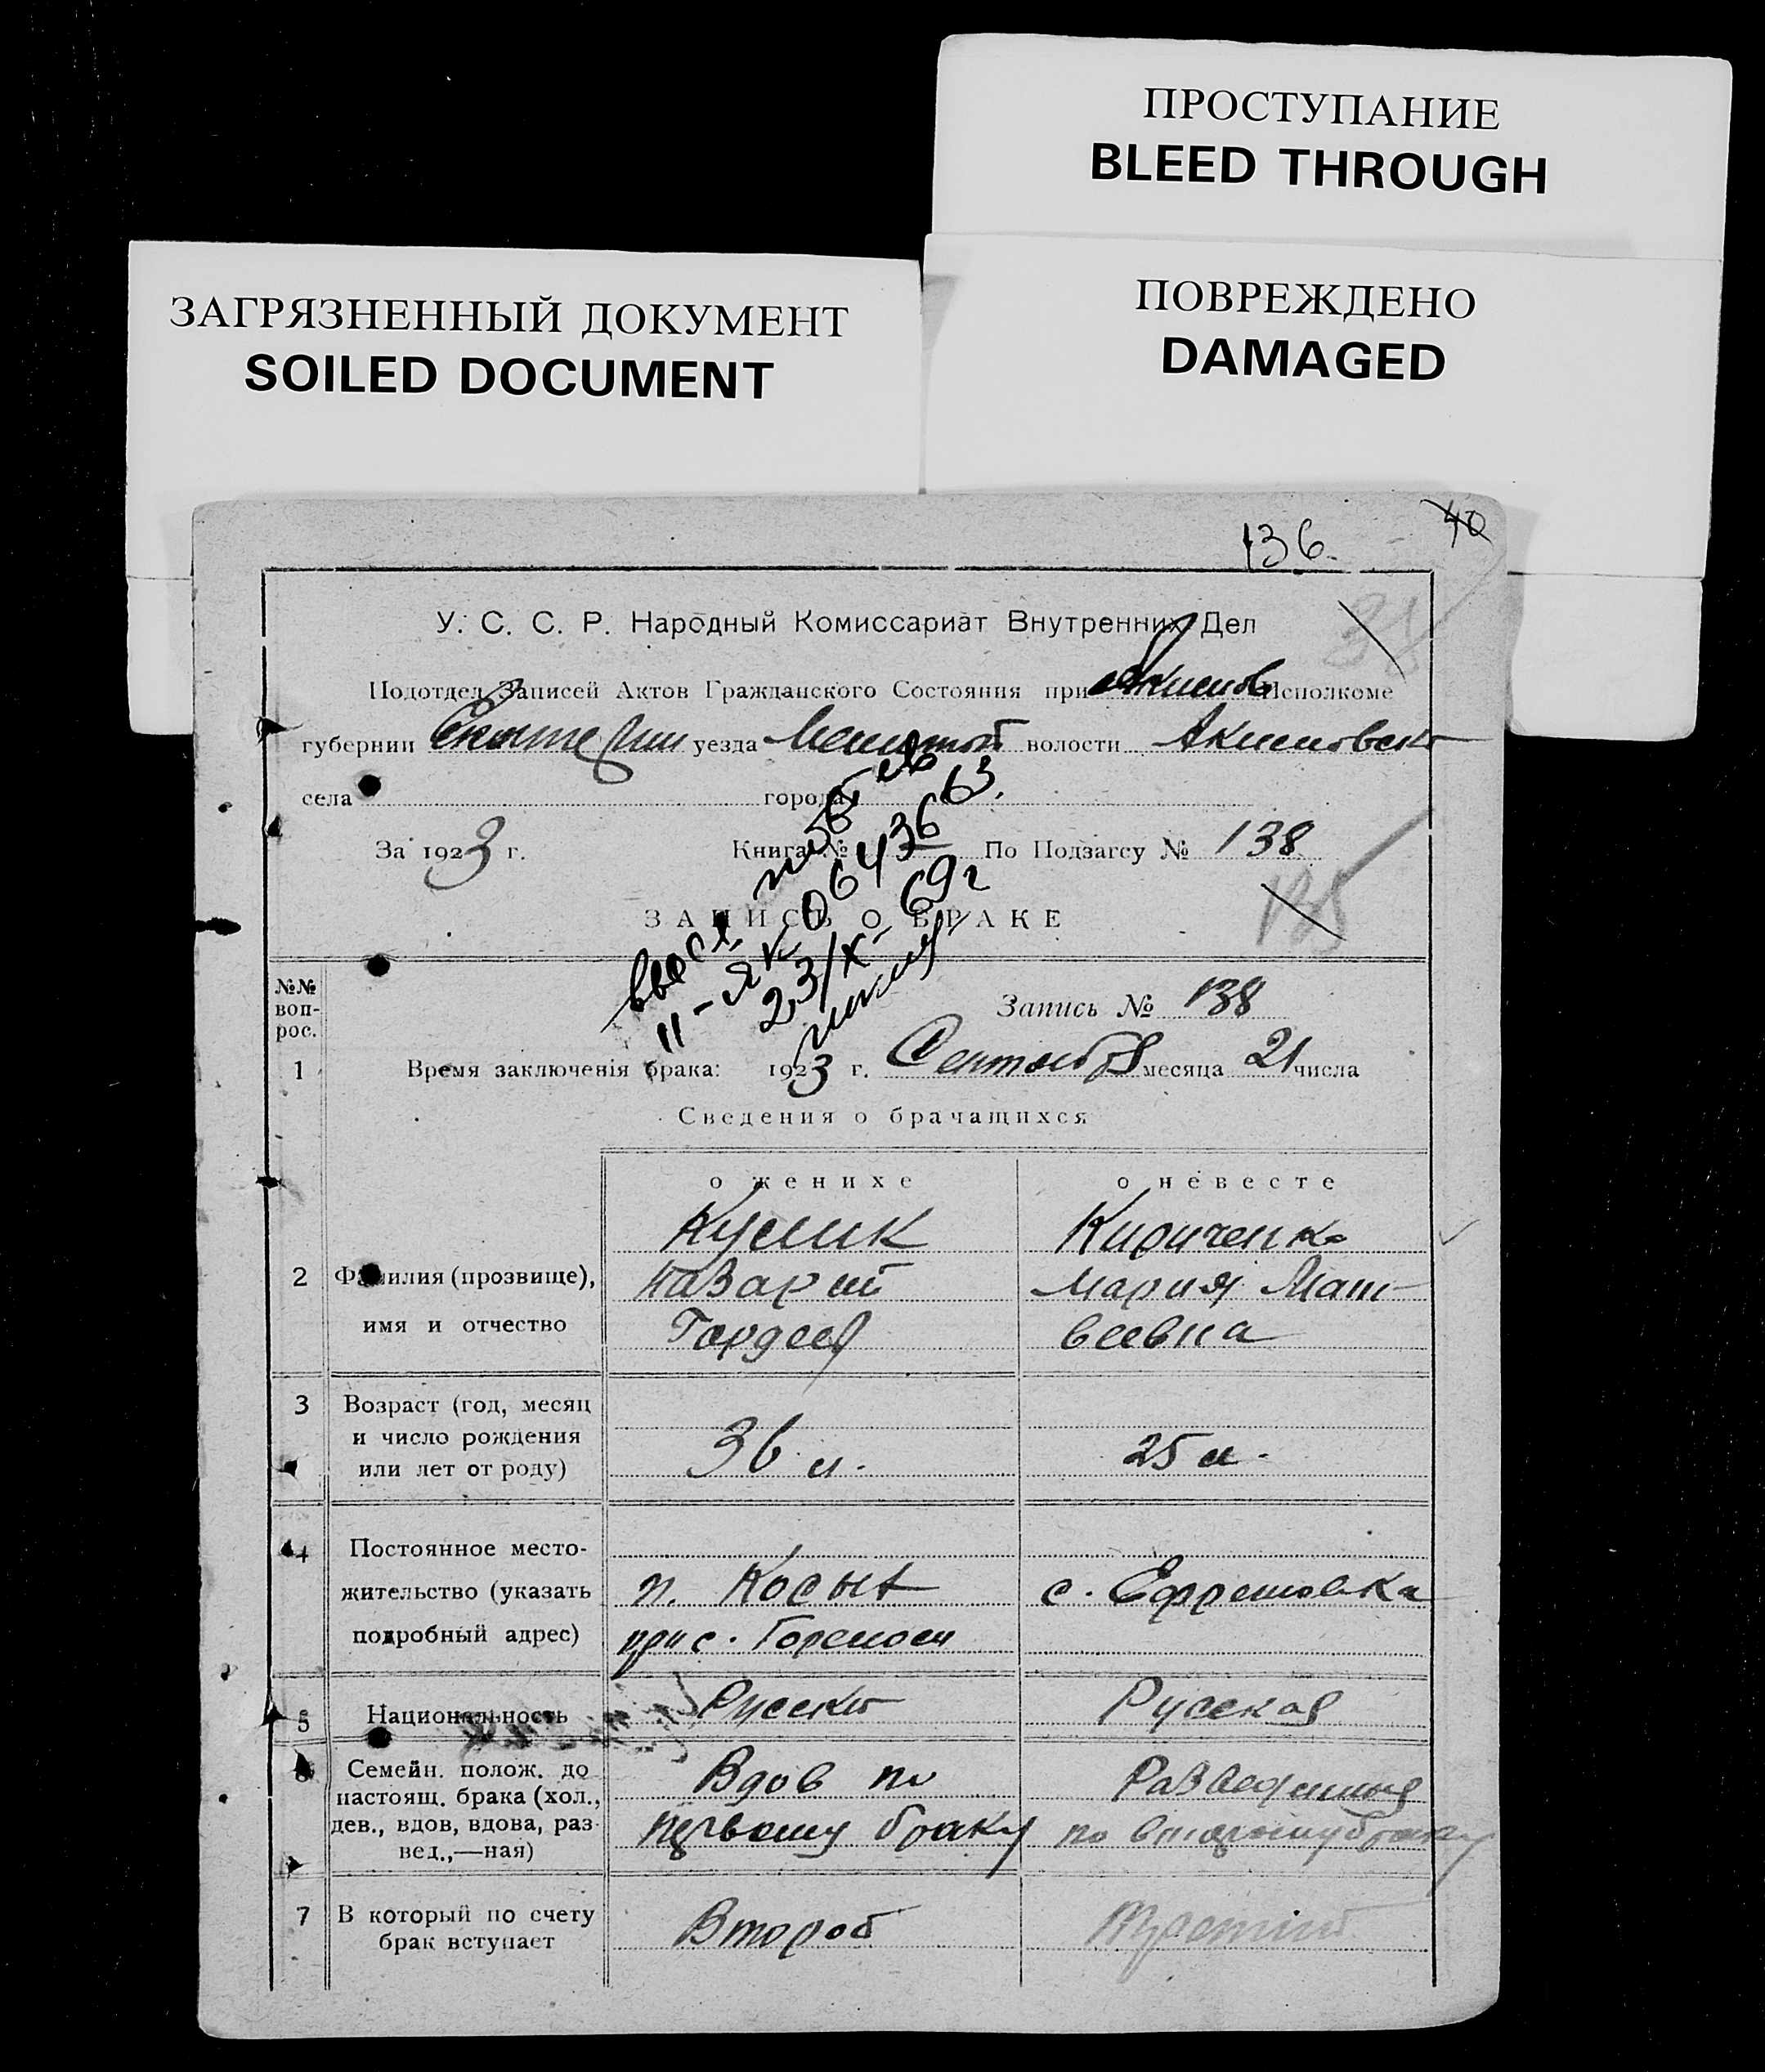 ПРОСТУПАНИЕ
BLEED THROUGH
ЗАГРЯЗНЕННЫЙ ДОКУМЕНТ
SOILED DOCUMENT
ПОВРЕЖДЕНО
DAMAGED
136.
40
У. С. С. Р. Народный Комиссариат Внутренних Дел
Подотдел Записей Актов Гражданского Состояния при Акимов Исполкоме
губернии Екатерин уезда Мелитой волости Акимовско
села города
За 1923 г. Книга № По Подзагсу № 138
ЗАПИСЬ О БРАКЕ
II-ЯК 064363
23/X-69г
№№ воп-рос.
Запись № 138
1 Время заключенiя брака: 1923 г. Сентября месяца 21 числа
Сведения о брачащихся
о женихе о невесте
Кулик Кириченко
2 Фамилия (прозвище), Назарий Мария Мат-
имя и отчество Гордеев веевна
3 Возраст (год, месяц
и число рождения 36 л. 25 л.
или лет от роду)
4 Постоянное место-
жительство (указать п. Косых с. Ефремовка
подробный адрес) при с.
5 Национальность Русский Русская
6 Семейн. полож. до
настоящ. брака (хол., Вдов по Разведенная
дев., вдов, вдова, раз- первому браку по второму браку
вед.,—ная)
7 В который по счету Второй Третий
брак вступает